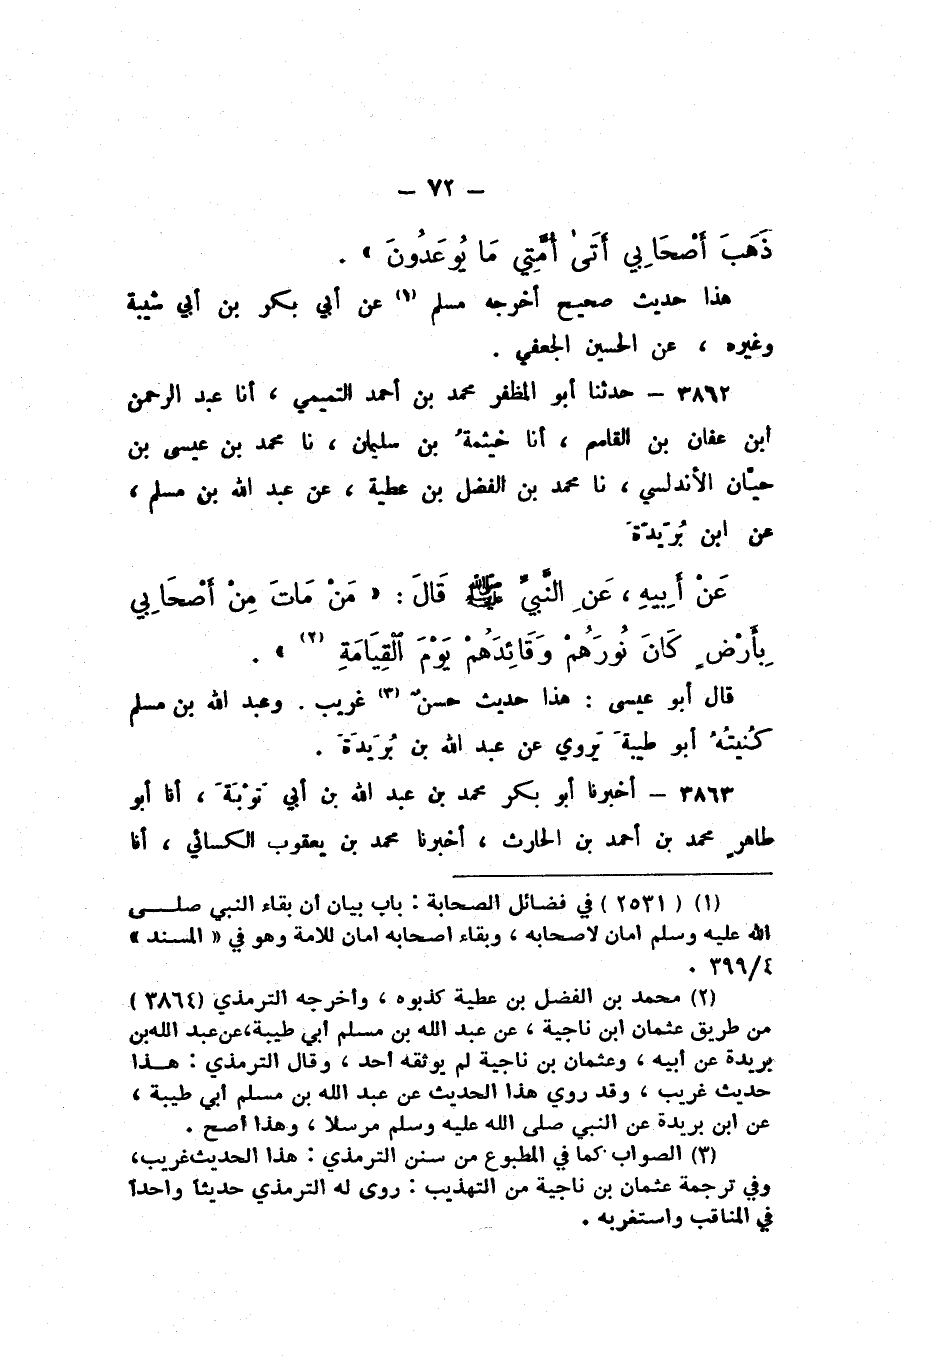 — ٧٢ —
ذَهَبَ أَصْحَابِي أَتَىٰ أُمَّتِي مَا يُوعَدُونَ » .
هذا حديث صحيح أخرجه مسلم (١) عن أبي بكر بن أبي شيبة
وغيره ، عن الحسين الجعفي .
٣٨٦٢ — حدثنا أبو المظفر محمد بن أحمد التميمي ، أنا عبد الرحمن
ابن عفان بن القاسم ، أنا خيثمةُ بن سليمان ، نا محمد بن عيسى بن
حيّان الأندلسي ، نا محمد بن الفضل بن عطية ، عن عبد الله بن مسلم ،
عن ابن بُرَيدَةَ
عَنْ أَبِيهِ ، عَنِ النَّبِيِّ ﷺ قَالَ : « مَنْ مَاتَ مِنْ أَصْحَابِي
بِأَرْضٍ كَانَ نُورَهُمْ وَقَائِدَهُمْ يَوْمَ ٱلْقِيَامَةِ (٢) » .
قال أبو عيسى : هذا حديث حسنٌ (٣) غريب . وعبد الله بن مسلم
كُنيتُهُ أبو طيبةَ يَروي عن عبد الله بن بُرَيدَةَ .
٣٨٦٣ — أخبرنا أبو بكر محمد بن عبد الله بن أبي تَوْبَةَ ، أنا أبو
طاهرٍ محمد بن أحمد بن الحارث ، أخبرنا محمد بن يعقوب الكسائي ، أنا
(١) ( ٢٥٣١ ) في فضائل الصحابة : باب بيان أن بقاء النبي صلى
الله عليه وسلم امان لاصحابه ، وبقاء اصحابه امان للامة وهو في « المسند »
٣٩٩/٤ .
(٢) محمد بن الفضل بن عطية كذبوه ، وأخرجه الترمذي (٣٨٦٤ )
من طريق عثمان ابن ناجية ، عن عبد الله بن مسلم أبي طيبة،عن عبد الله بن
بريدة عن أبيه ، وعثمان بن ناجية لم يوثقه أحد ، وقال الترمذي : هذا
حديث غريب ، وقد روي هذا الحديث عن عبد الله بن مسلم أبي طيبة ،
عن ابن بريدة عن النبي صلى الله عليه وسلم مرسلا ، وهذا أصح .
(٣) الصواب كما في المطبوع من سنن الترمذي : هذا الحديث غريب،
وفي ترجمة عثمان بن ناجية من التهذيب : روى له الترمذي حديثاً واحداً
في المناقب واستغربه .